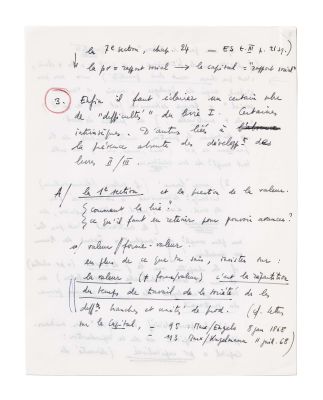 la 7e section, chap. 24 — ES t. III p. 
↓ la pv = rapport social → le capital = "rapport social"
3. Enfin il faut éclairer un certain nbre
de "difficultés" du livre I. Certaines
intrinsèques. D'autres liées à
la présence absente des développts des
livres II/III.
A/ la 1e section et la question de la valeur.
{ comment la lire?
{ ce qu'il faut en retenir pour pouvoir avancer?
a/ valeur/forme-valeur.
en plus de ce que tu sais, insister sur:
la valeur (+ forme/valeur) c'est la répartition
du temps de travail de la société ds les
difftes branches et unités de prod. (cf. lettres
sur le Capital, - 95 Marx/Engels 8 jan 1868
- 113 Marx/Kugelmann 11 juil. 68)